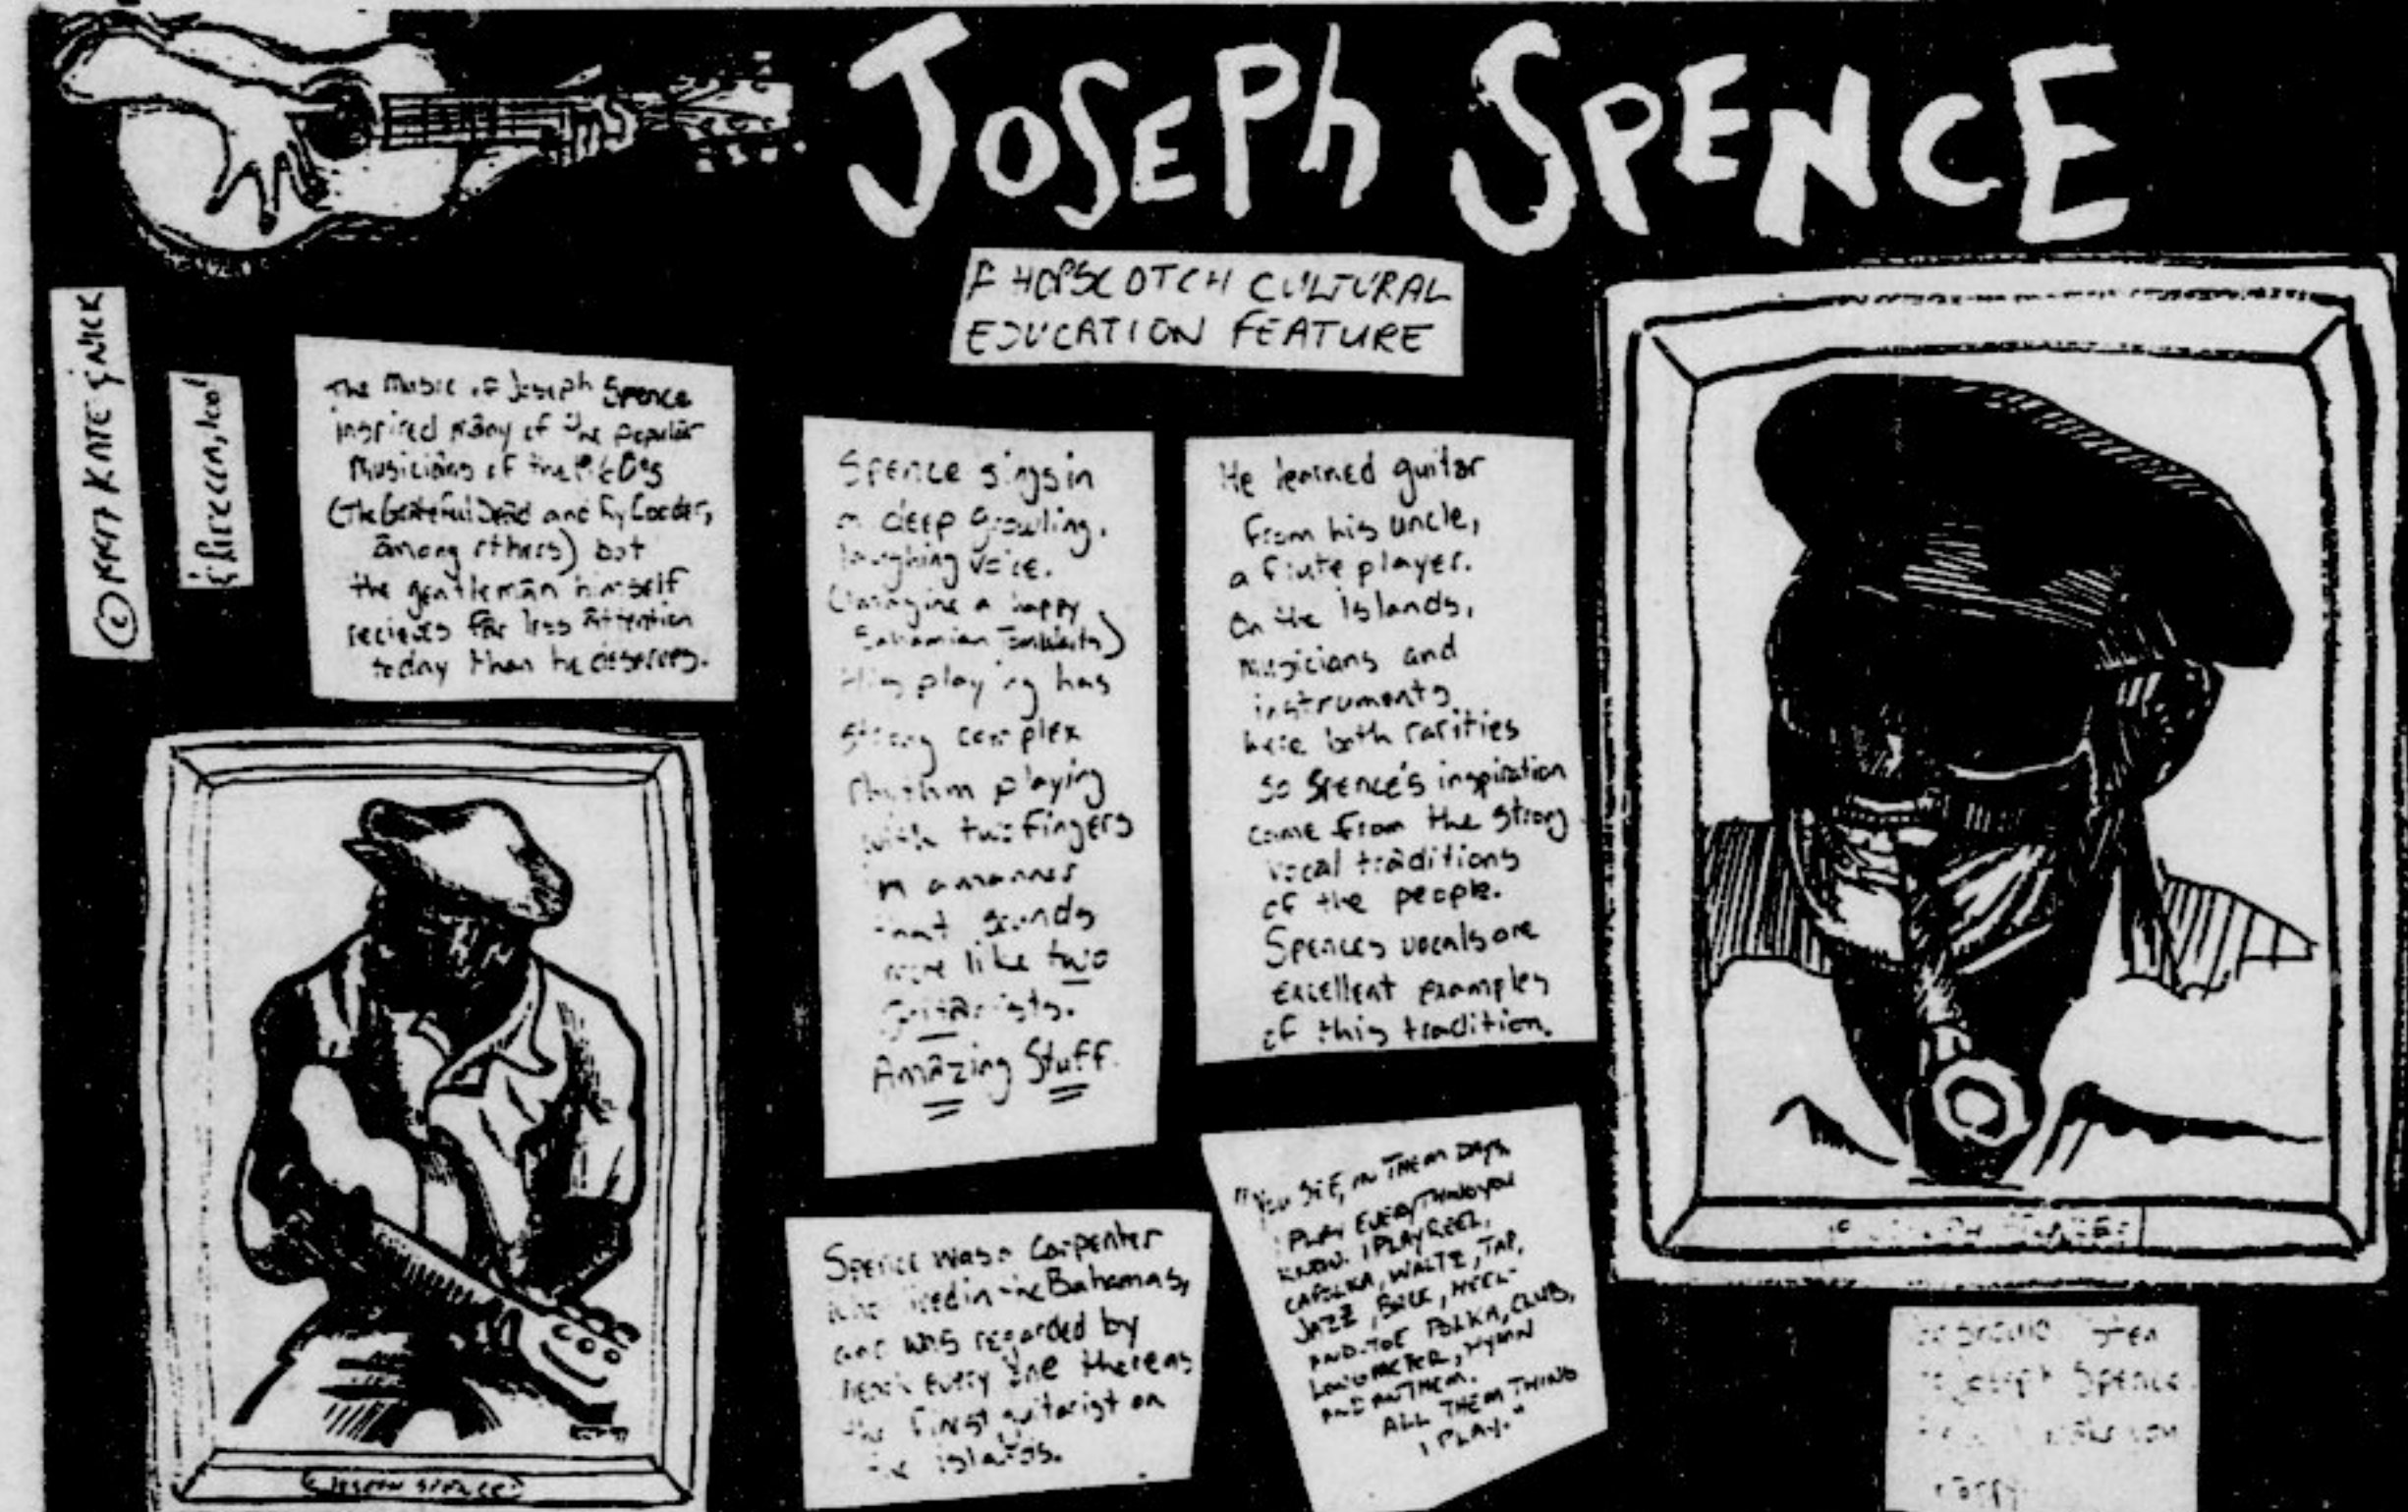 JOSEPH SPENCE
A HOPSCOTCH CULTURAL
EDUCATION FEATURE
© 1997 KATE & NICK
The Music of Joseph Spence
inspired many of the popular
Musicians of the 1960s
(The Grateful Dead and Ry Cooder,
among others) but
the gentleman himself
recieves far less attention
today than he deserves.
Spence sings in
a deep growling,
laughing voice.
(Imagine a happy
Bahamian Tom Waits)
His playing has
strong complex
rhythm playing
with two fingers
in a manner
that sounds
more like two
guitarists.
Amazing Stuff.
He learned guitar
from his uncle,
a flute player.
On the islands,
musicians and
instruments
were both rarities
so Spence's inspiration
came from the strong
vocal traditions
of the people.
Spences vocals are
excellent examples
of this tradition.
Spence was a Carpenter
who lived in the Bahamas,
and was regarded by
near every one there as
the finest guitarist on
the islands.
"YOU SEE, IN THEM DAYS,
I PLAY EVERYTHING YOU
KNOW. I PLAY REEL,
CAPOLKA, WALTZ, TAP,
JAZZ, BUCK, HEEL-
AND-TOE POLKA, CLUB,
LONGMETER, HYMN
AND ANTHEM.
ALL THEM THING
I PLAY."
JOSEPH SPENCE
Joseph Spence